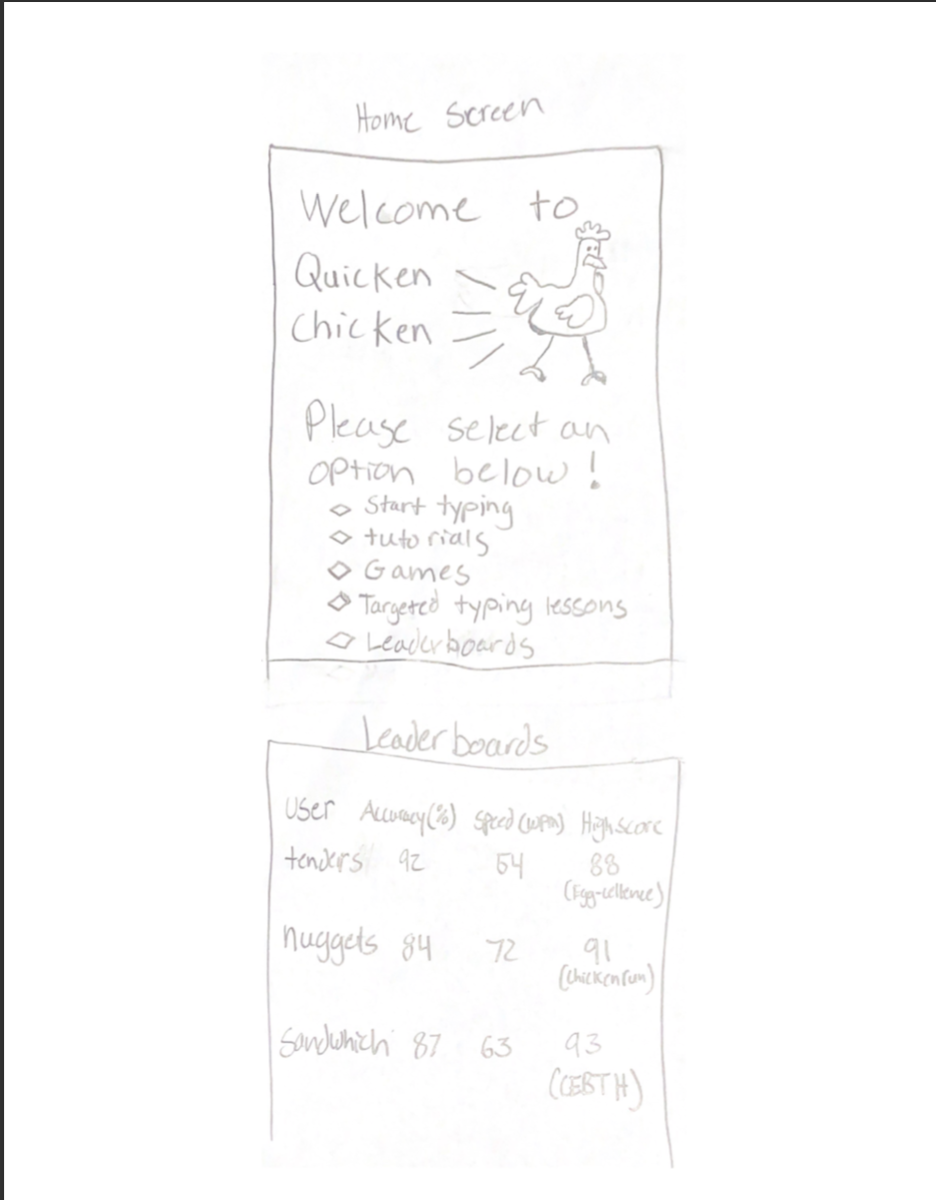 Home Screen
Welcome to
Quicken
Chicken
Please select an
option below!
Start typing
tutorials
Games
Targeted typing lessons
Leaderboards
Leaderboards
User Accuracy(%) Speed (WPM) High Score
tenders 92 54 88
(Egg-cellence)
nuggets 84 72 91
(Chicken run)
Sandwhich 87 63 93
(CEBTH)